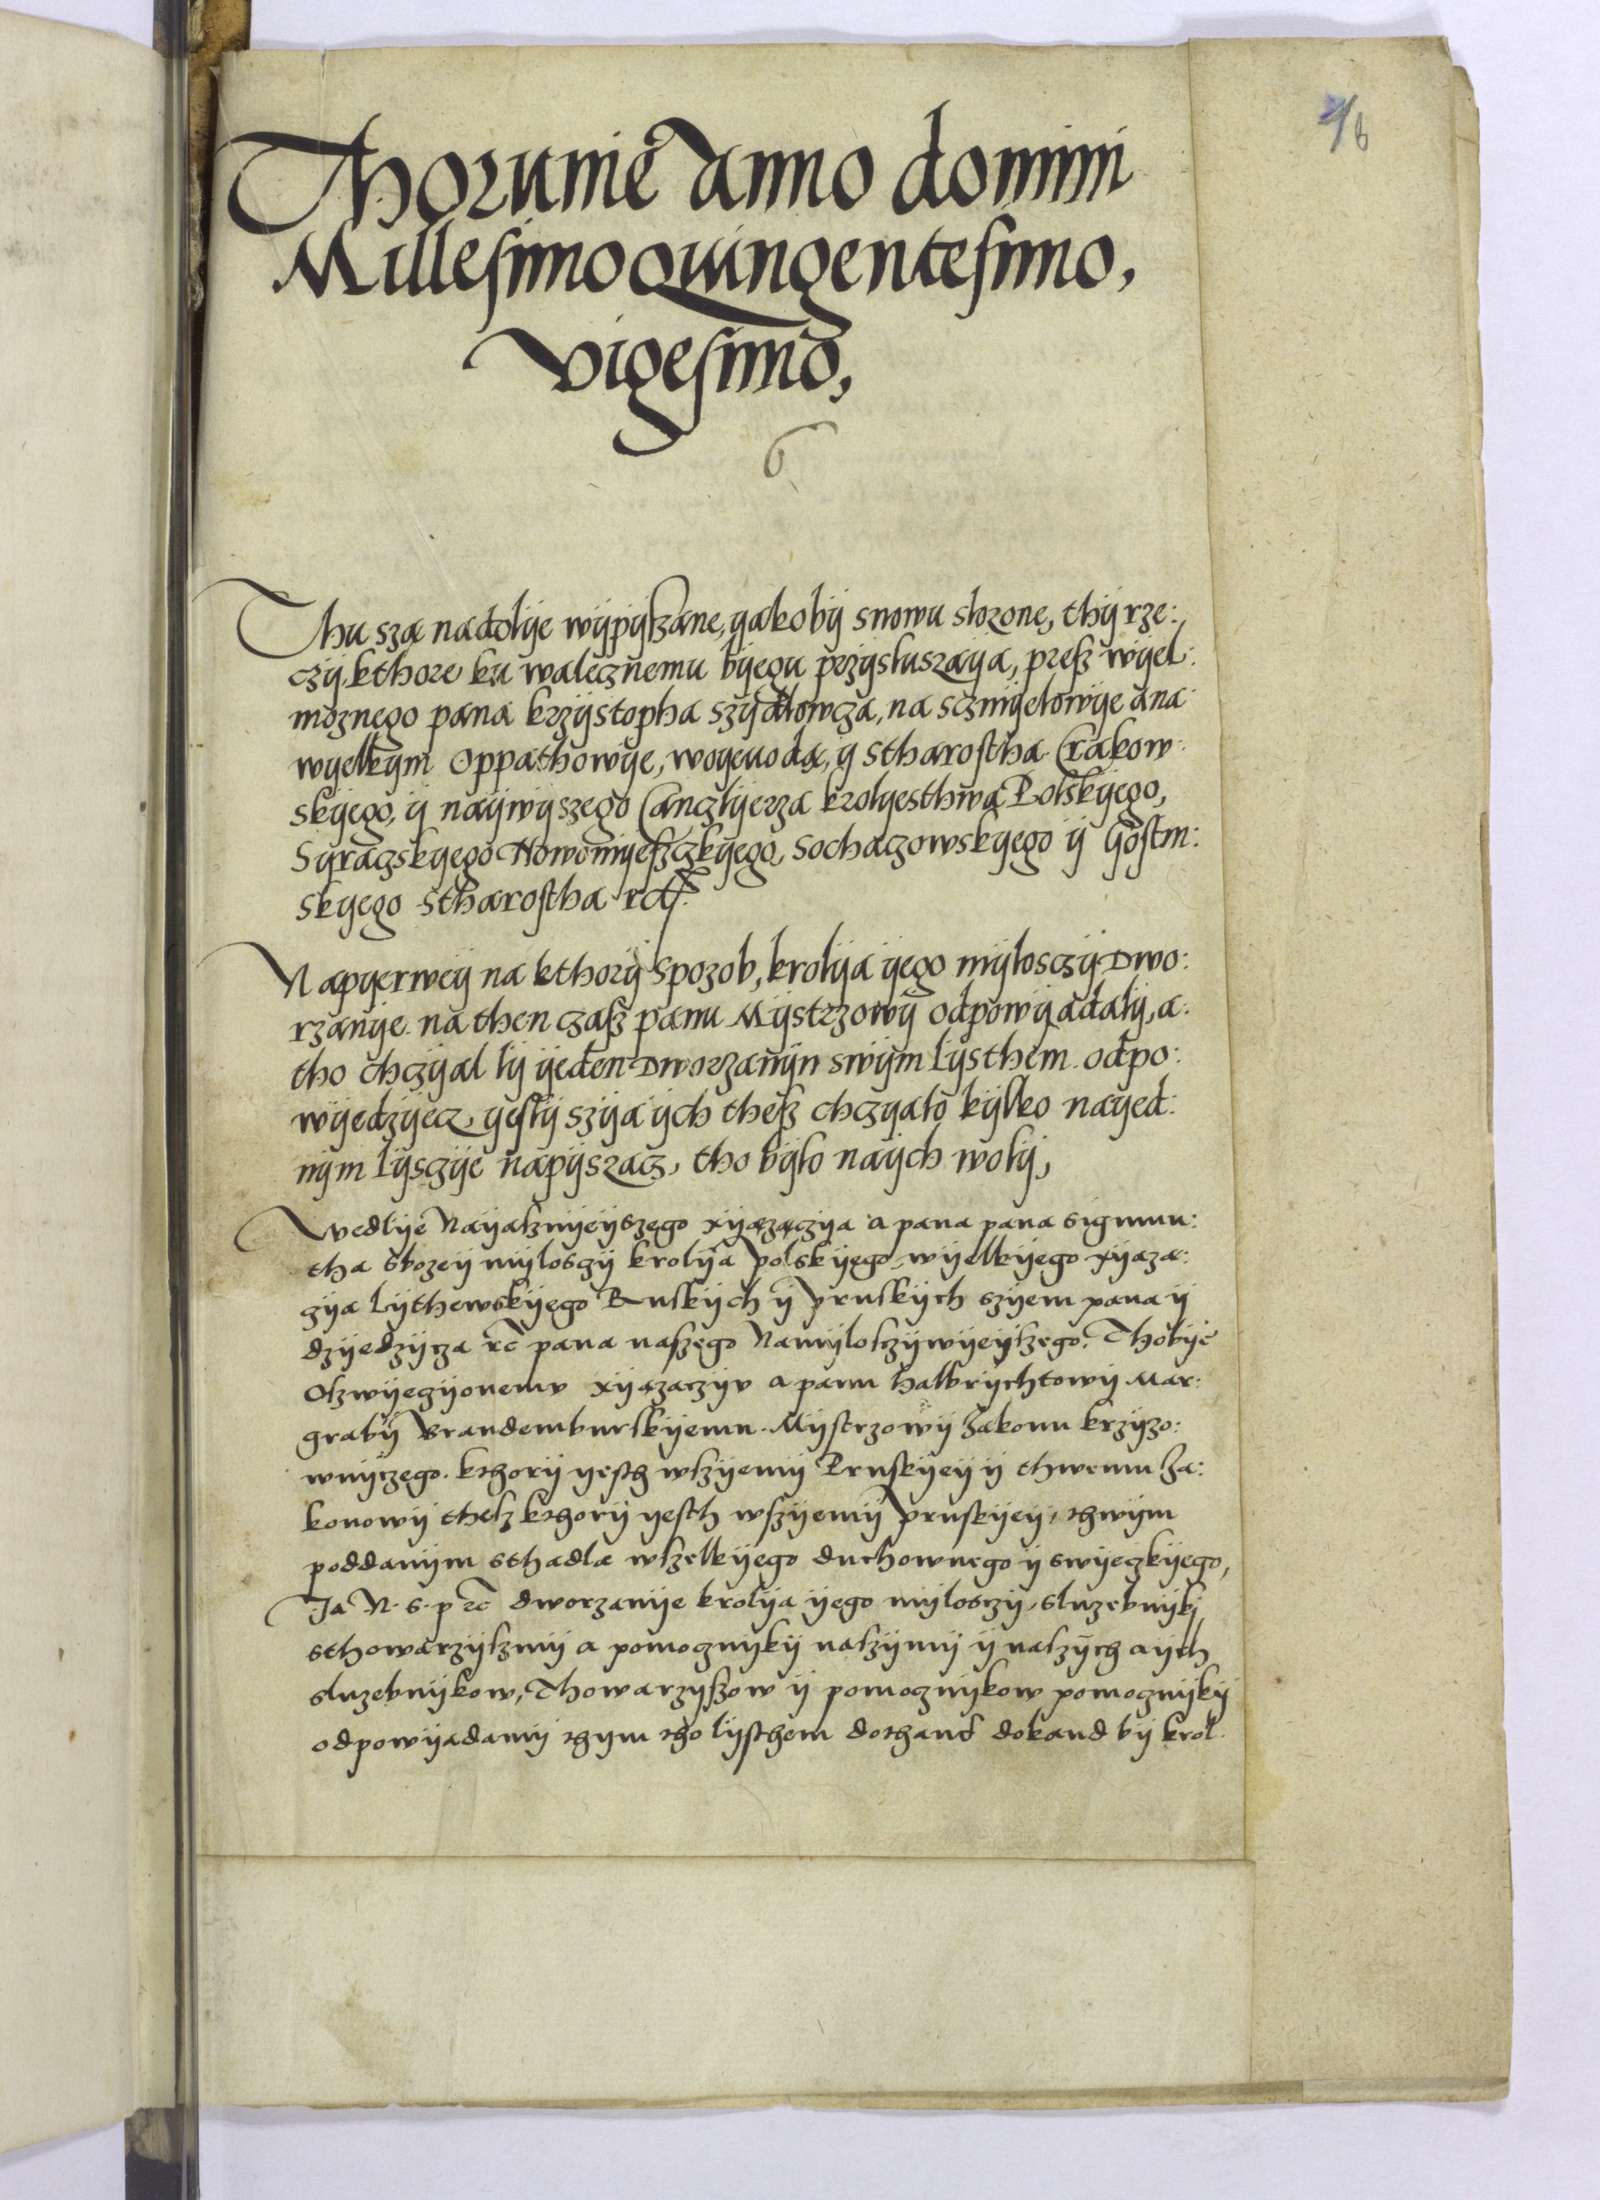 6
Thorunie Anno domini
Millesimoquingentesimo,
vigesimo,
6
Thu szą nadolÿe wÿpÿszane, ÿakobÿ snowu slozone, thÿ rze:
czÿ, kthore ku walecznemu bÿegu przÿsluszaÿa, presz wÿel:
moznego pana krzÿstopha szÿdlowcza, na sczmÿelowÿe ana
wÿelkÿm Oppathowÿe, woÿeuodą, ÿ stharostha Crakow:
skÿego, ÿ naÿwÿszego Canczlÿerza krolÿesthwa Polskÿego,
Sÿraczskÿego Nowomÿesczkÿego, Sochaczowskÿego ÿ Gostin:
skÿego stharostha
Napÿerweÿ na kthorÿ spozob, krolÿa ÿego mÿlosczÿ Dwo:
rzanÿe na then czasz panu Mÿstrzowÿ odpowÿadalÿ, a:
tho chczÿal lÿ ÿeden Dworzanÿn swÿm lÿsthem odpo:
wÿedzÿecz, ÿeslÿ szÿa ÿch thesz chczÿalo kÿlko naÿed:
nÿm lÿsczÿe napÿszacz, tho bÿlo naÿch wolÿ,
Wedlÿe Naÿasznÿeÿszego xÿązączÿa a pana pana sigmun:
tha sbozeÿ mÿlosczÿ krolÿa polskÿego, wÿelkÿego xÿąza:
czÿa Lÿthewskÿego Ruskÿch ÿ pruskÿch szÿem pana ÿ
dzÿedzÿcza rc pana naszego Namÿlosczÿwÿeÿszego. Thobÿe
Oszwÿeczÿonemv xÿązaczÿv a panu halbrÿchtowÿ Mar:
grabÿ Brandemburskÿemu. Mÿstrzowÿ Zakonu krzÿzo:
wnÿczego. kthorÿ ÿesth wszÿemÿ Pruskÿeÿ ÿ thwemu Za:
konowÿ thesz kthorÿ ÿesth wszÿemÿ pruskÿeÿ, thwÿm
poddanÿm sthadla wszelkÿego duchownego ÿ swÿeczkÿego,
Ja N. S. p rc dworzanÿe krolÿa ÿego mÿlosczÿ, sluzebnÿkÿ
sthowarzÿszmÿ a pomocznÿkÿ naszÿmÿ ÿ naszÿch aÿch
sluzebnÿkow, Thowarzÿszow ÿ pomocznÿkow pomocznÿkÿ
odpowÿadamÿ thÿm tho lÿsthem dothand dokand bÿ krol